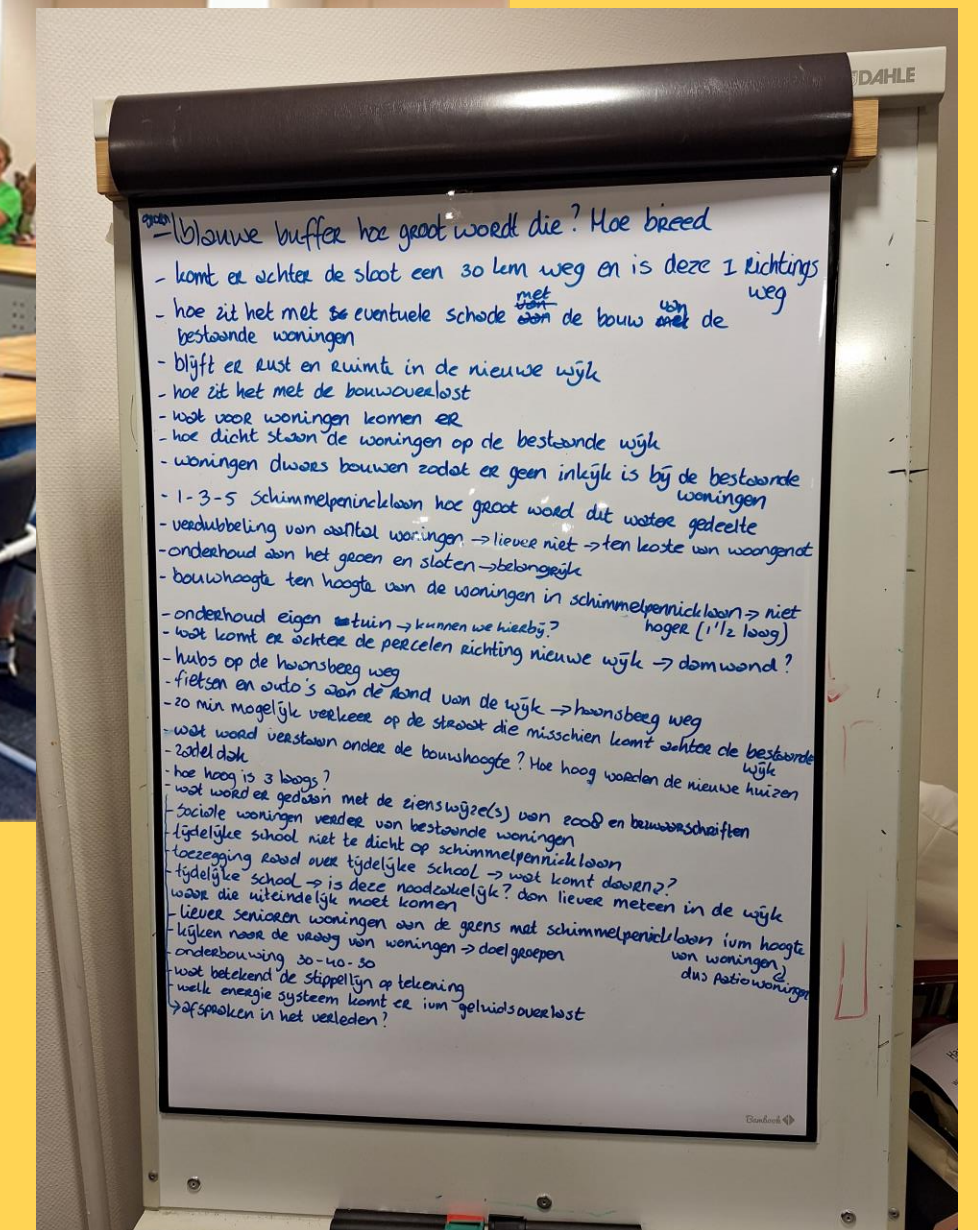 DAHLE
groen
- (b)lauwe buffer hoe groot wordt die? Hoe breed
- komt er achter de sloot een 30 km weg en is deze 1 Richtings
weg
- hoe zit het met eventuele schade met de bouw van de
bestaande woningen
- blijft er rust en ruimte in de nieuwe wijk
- hoe zit het met de bouwoverlast
- wat voor woningen komen er
- hoe dicht staan de woningen op de bestaande wijk
- woningen dwars bouwen zodat er geen inkijk is bij de bestaande
woningen
- 1-3-5 Schimmelpenincklaan hoe groot word dit water gedeelte
- verdubbeling van aantal woningen → liever niet → ten koste van woongenot
- onderhoud aan het groen en sloten → belangrijk
- bouwhoogte ten hoogte van de woningen in schimmelpennicklaan → niet
hoger (1 1/2 laag)
- onderhoud eigen tuin → kunnen we hierbij?
- wat komt er achter de percelen richting nieuwe wijk → damwand?
- hubs op de haansberg weg
- fietsen en auto's aan de rand van de wijk → haansberg weg
- zo min mogelijk verkeer op de straat die misschien komt achter de bestaande
wijk
- wat word verstaan onder de bouwhoogte? Hoe hoog worden de nieuwe huizen
- zadel dak
- hoe hoog is 3 laags?
- wat word er gedaan met de zienswijze(s) van 2008 en bezwaarschriften
- sociale woningen verder van bestaande woningen
- tijdelijke school niet te dicht op schimmelpennicklaan
- toezegging Raad over tijdelijke school → wat komt daarna?
- tijdelijke school → is deze noodzakelijk? dan liever meteen in de wijk
waar die uiteindelijk moet komen
- liever senioren woningen aan de grens met schimmelpenicklaan ivm hoogte
van woningen,
dus patiowoningen
- kijken naar de vraag van woningen → doelgroepen
- onderbouwing 30-40-30
- wat betekend de stippellijn op tekening
- welk energie systeem komt er ivm geluidsoverlast
↳ afspraken in het verleden?
Bambook